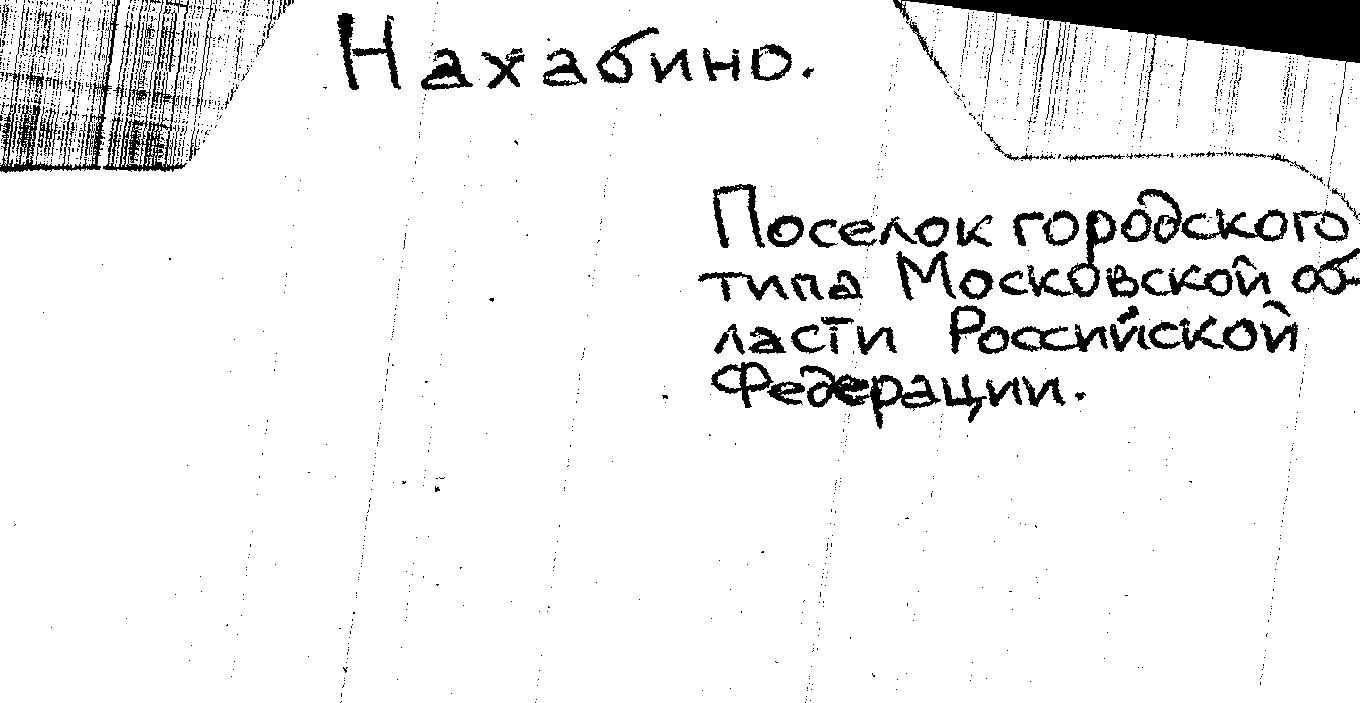 Нахабино.
Поселок городского
типа Московской об-
ласти Российской
Федерации.